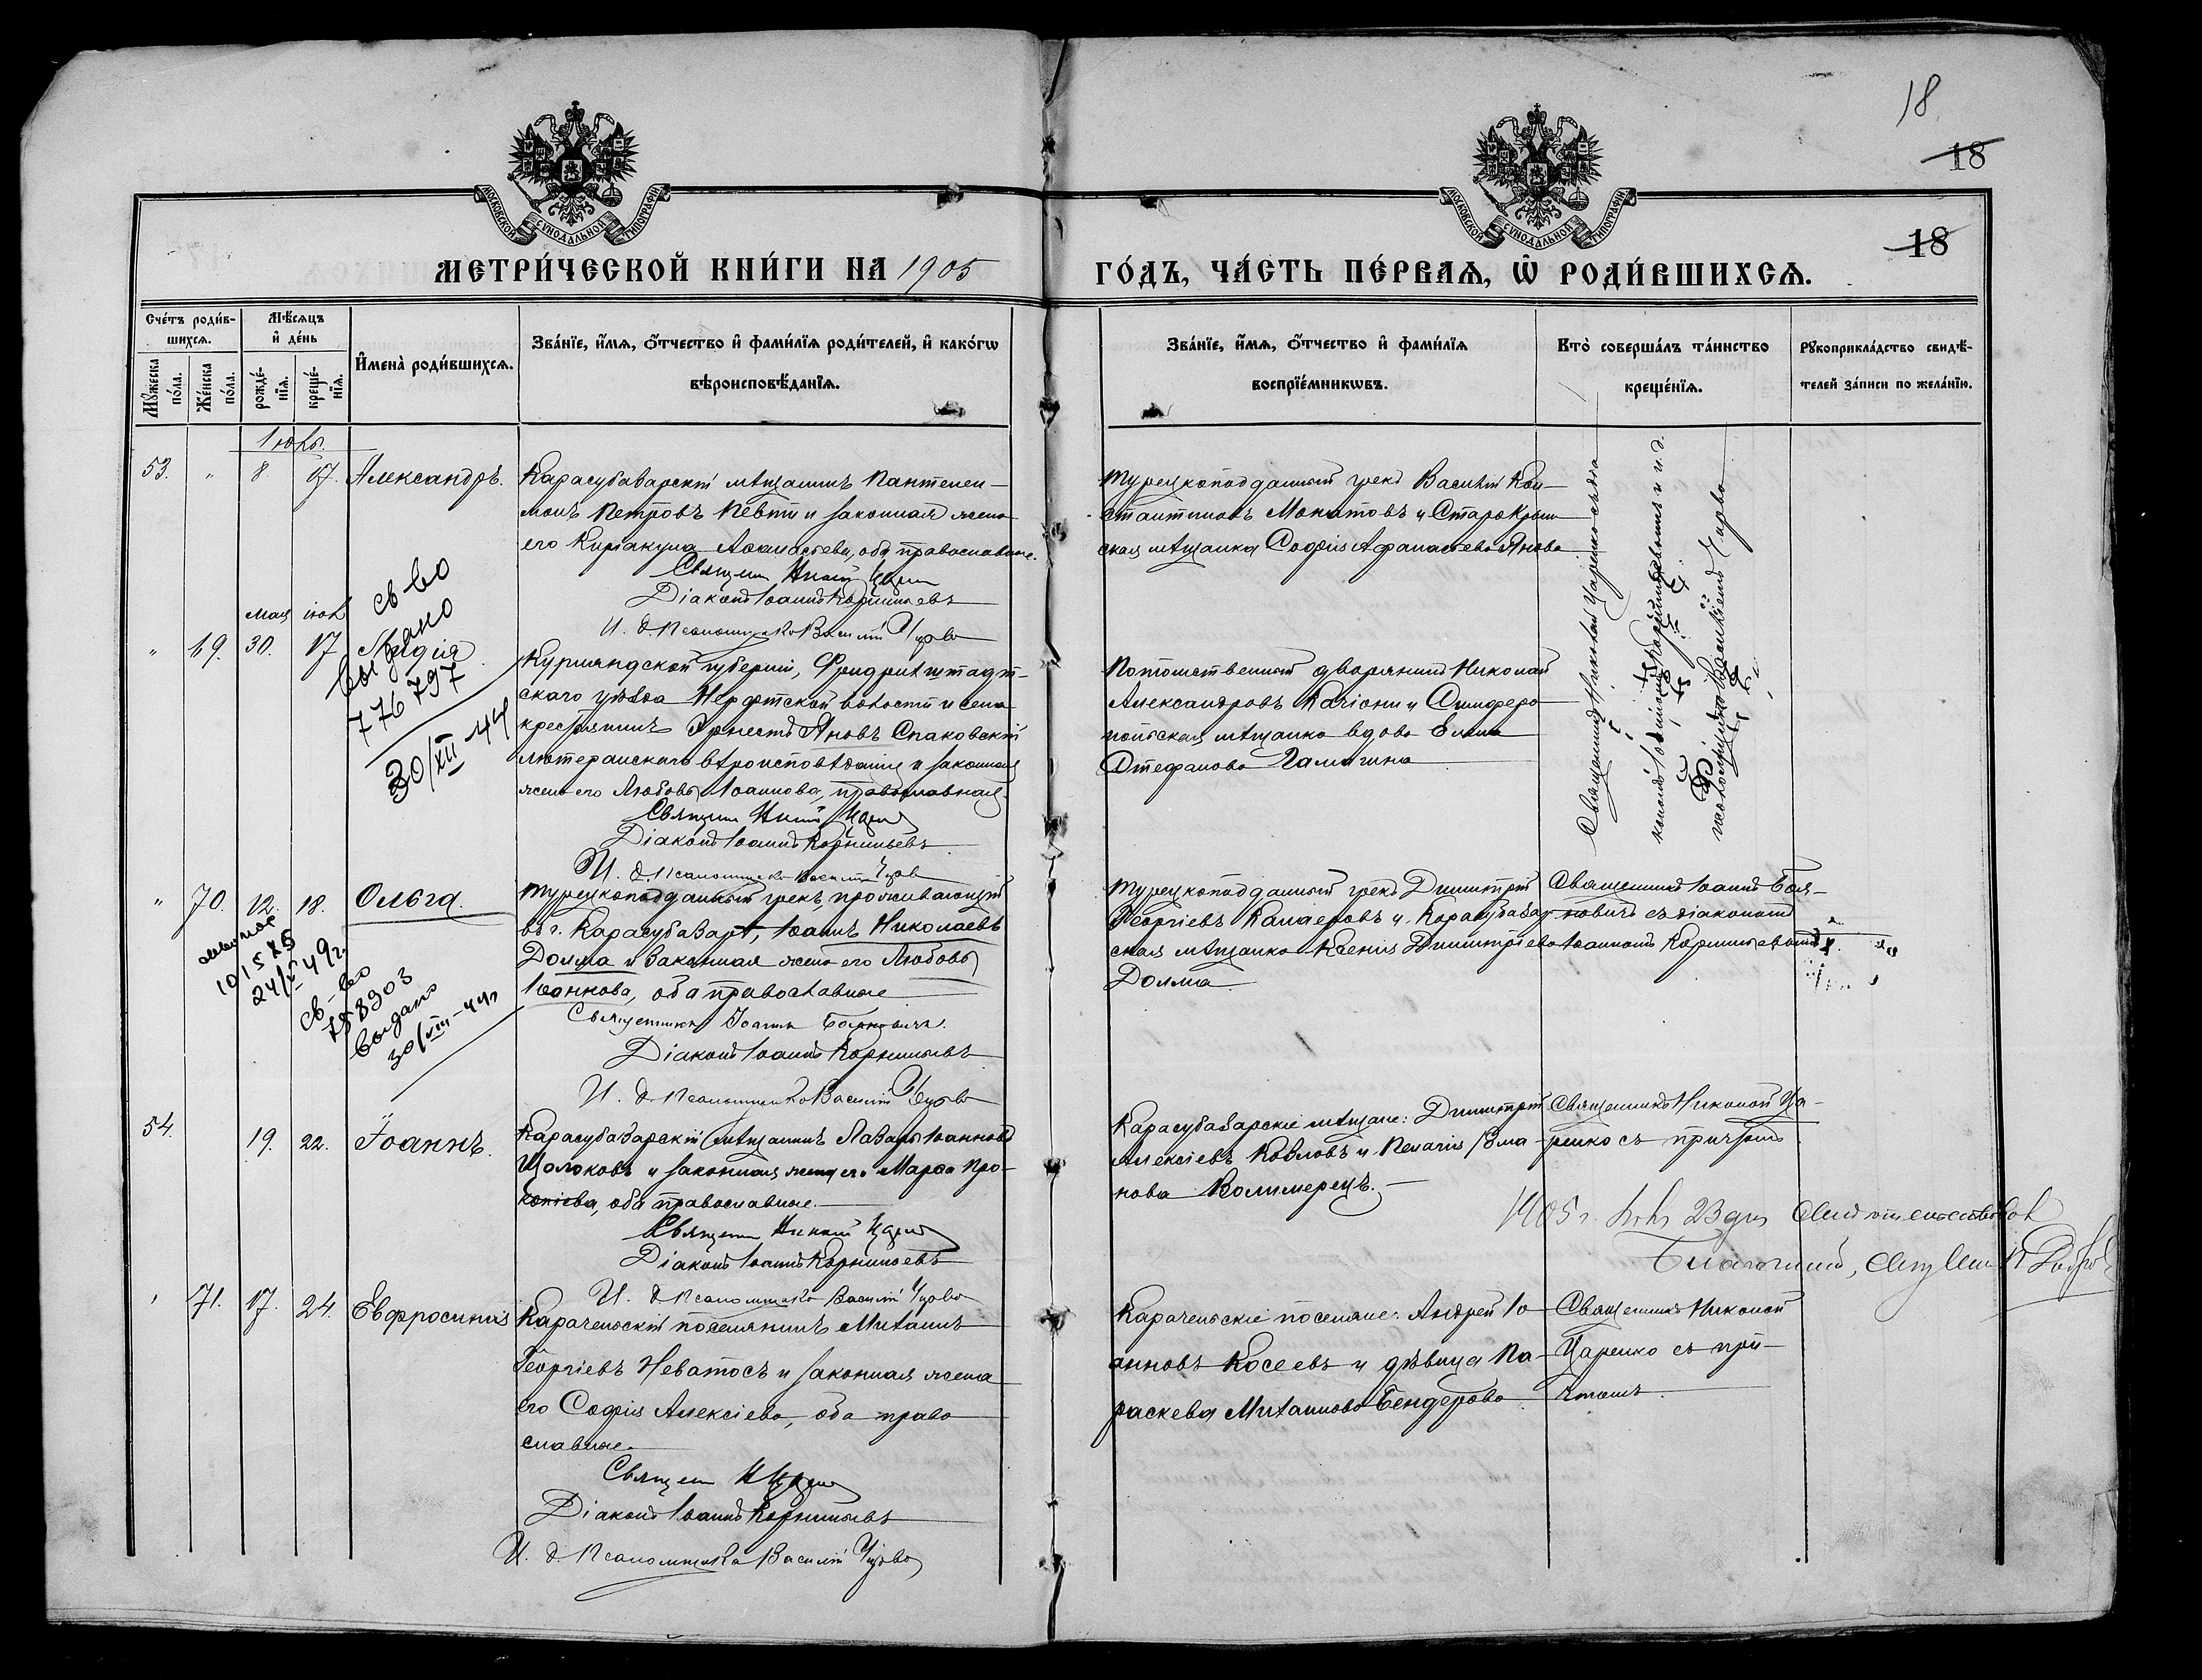 18
18
18
МОСКОВСКОЙ СУНОДАЛЬНОЙ ТИПОГРАФІИ
МОСКОВСКОЙ СУНОДАЛЬНОЙ ТИПОГРАФІИ
МЕТРИ́ЧЕСКОЙ КНИ́ГИ НА 1905
ГО́ДЪ, ЧА́СТЬ ПЕ́РВАѦ, Ѽ РОДИ́ВШИХСѦ.
Сче́тъ роди́в-
шихсѧ.
Мꙋ́жеска по́ла.
Же́нска по́ла.
Мѣ́сѧцъ
и҆ де́нь
рожде́-
нїѧ.
креще́-
нїѧ.
И҆мена̀ роди́вшихсѧ.
Зва́нїе, и҆́мѧ, ѻ҆́тчество и҆ фами́лїѧ роди́телей, и҆ како́гѡ
вѣроисповѣ́данїѧ.
Зва́нїе, и҆́мѧ, ѻ҆́тчество и҆ фами́лїѧ
воспрїе́мникѡвъ.
Кто̀ соверша́лъ та́инство
креще́нїѧ.
Рꙋкоприкла́дство свидѣ́-
телей за́писи по жела́нїю.
53. " 8. 17. Александръ.
Карасубазарскій мѣщанинъ Пантелеи-
монъ Петровъ и законная жена
его Киріакула Аѳанасьева, оба православные.
Діаконъ Іоаннъ Корнильевъ
И. д. Псаломщика Василій
Турецкоподданный грекъ Василій Кон-
стантиновъ и Старокрым-
ская мѣщанка Софія Афанасьева Янова
Священникъ Николай Царенко съ діа-
кономъ Іоанномъ Корнильевымъ и и. д.
псаломщика Василіемъ
мая іюнь
" 69. 30. 17 Лидія
св-во
выдано
776797
30/XII-44
Курляндской губерніи, Фридрихштадт-
скаго уѣзда волости и села
крестьянинъ Эрнестъ Яновъ Спаковскій
лютеранскаго вѣроисповѣданія и законная
жена его Любовь Іоаннова, православная
Діаконъ Іоаннъ Корнильевъ
И. д. Псаломщика Василій
Потомственный дворянинъ Николай
Александровъ Качіони и Симферо-
польская мѣщанка вдова Елена
Стефанова Галагина
" 70. 12. 18. Ольга.
101585
24/V 49 г.
св-во
758903
выдано
30/VIII-44г
Турецкоподданный грекъ, проживающій
въ г. Карасубазарѣ, Іоаннъ Николаевъ
Долма и законная жена его Любовь
Іоаннова, оба православные
Священникъ Іоаннъ Боянович.
Діаконъ Іоаннъ Корнильевъ
И. д. Псаломщика Василій
Турецкоподданный грекъ Димитрій
Георгіевъ и Карасубазар-
ская мѣщанка Ксенія Димитріева
Долма
Священникъ Іоаннъ Боя-
новичъ съ діакономъ
Іоанномъ Корнильевымъ
54. 19. 22. Іоаннъ.
Карасубазарскій мѣщанинъ Лазарь Іоанновъ
Щолоковъ и законная жена его Марѳа Про-
копіева, оба православные.
Діаконъ Іоаннъ Корнильевъ
И. д. Псаломщика Василій
Карасубазарскіе мѣщане: Димитрій
Алексіевъ Козловъ и Пелагія
нова
Священникъ Николай Ца-
ренко съ причтомъ
1905 г. 23 дня
" 71. 17. 24. Евфросинія
Карачельскій поселянинъ Михаилъ
Георгіевъ Неватосъ и законная жена
его Софія Алексіева, оба право-
славные.
Діаконъ Іоаннъ Корнильевъ
И. д. Псаломщика Василій
Карачельскіе поселяне: Андрей Іо-
анновъ Косеевъ и дѣвица Па-
раскева Михаилова Бендерова
Священникъ Николай
Царенко съ при-
чтомъ